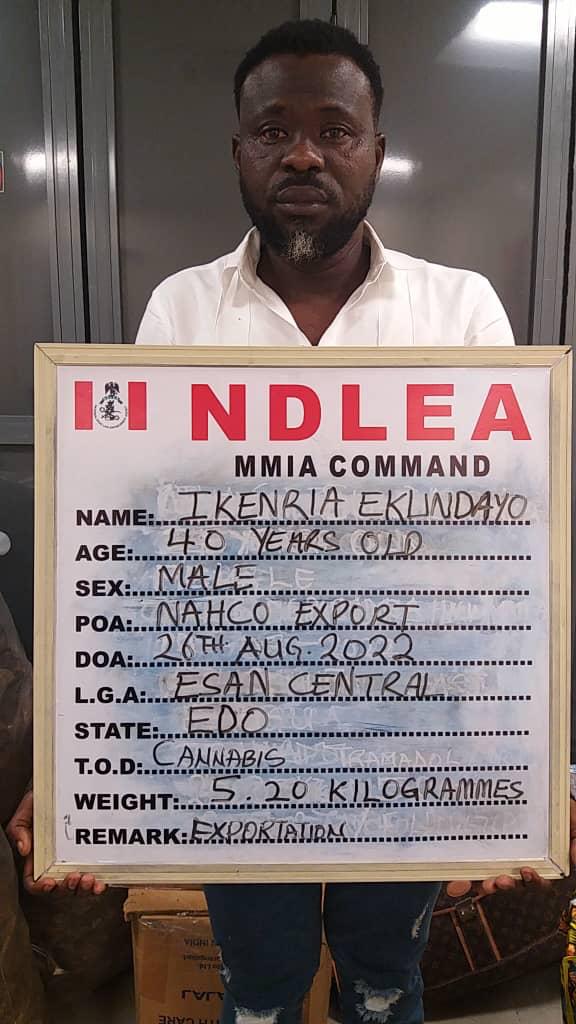 NDLEA
MMIA COMMAND
NAME: IKENRIA EKUNDAYO
AGE: 40 YEARS OLD
SEX: MALE
POA: NAHCO EXPORT
DOA: 26TH AUG. 2022
L.G.A: ESAN CENTRAL
STATE: EDO
T.O.D: CANNABIS
WEIGHT: 5.20 KILOGRAMMES
REMARK: EXPORTATION